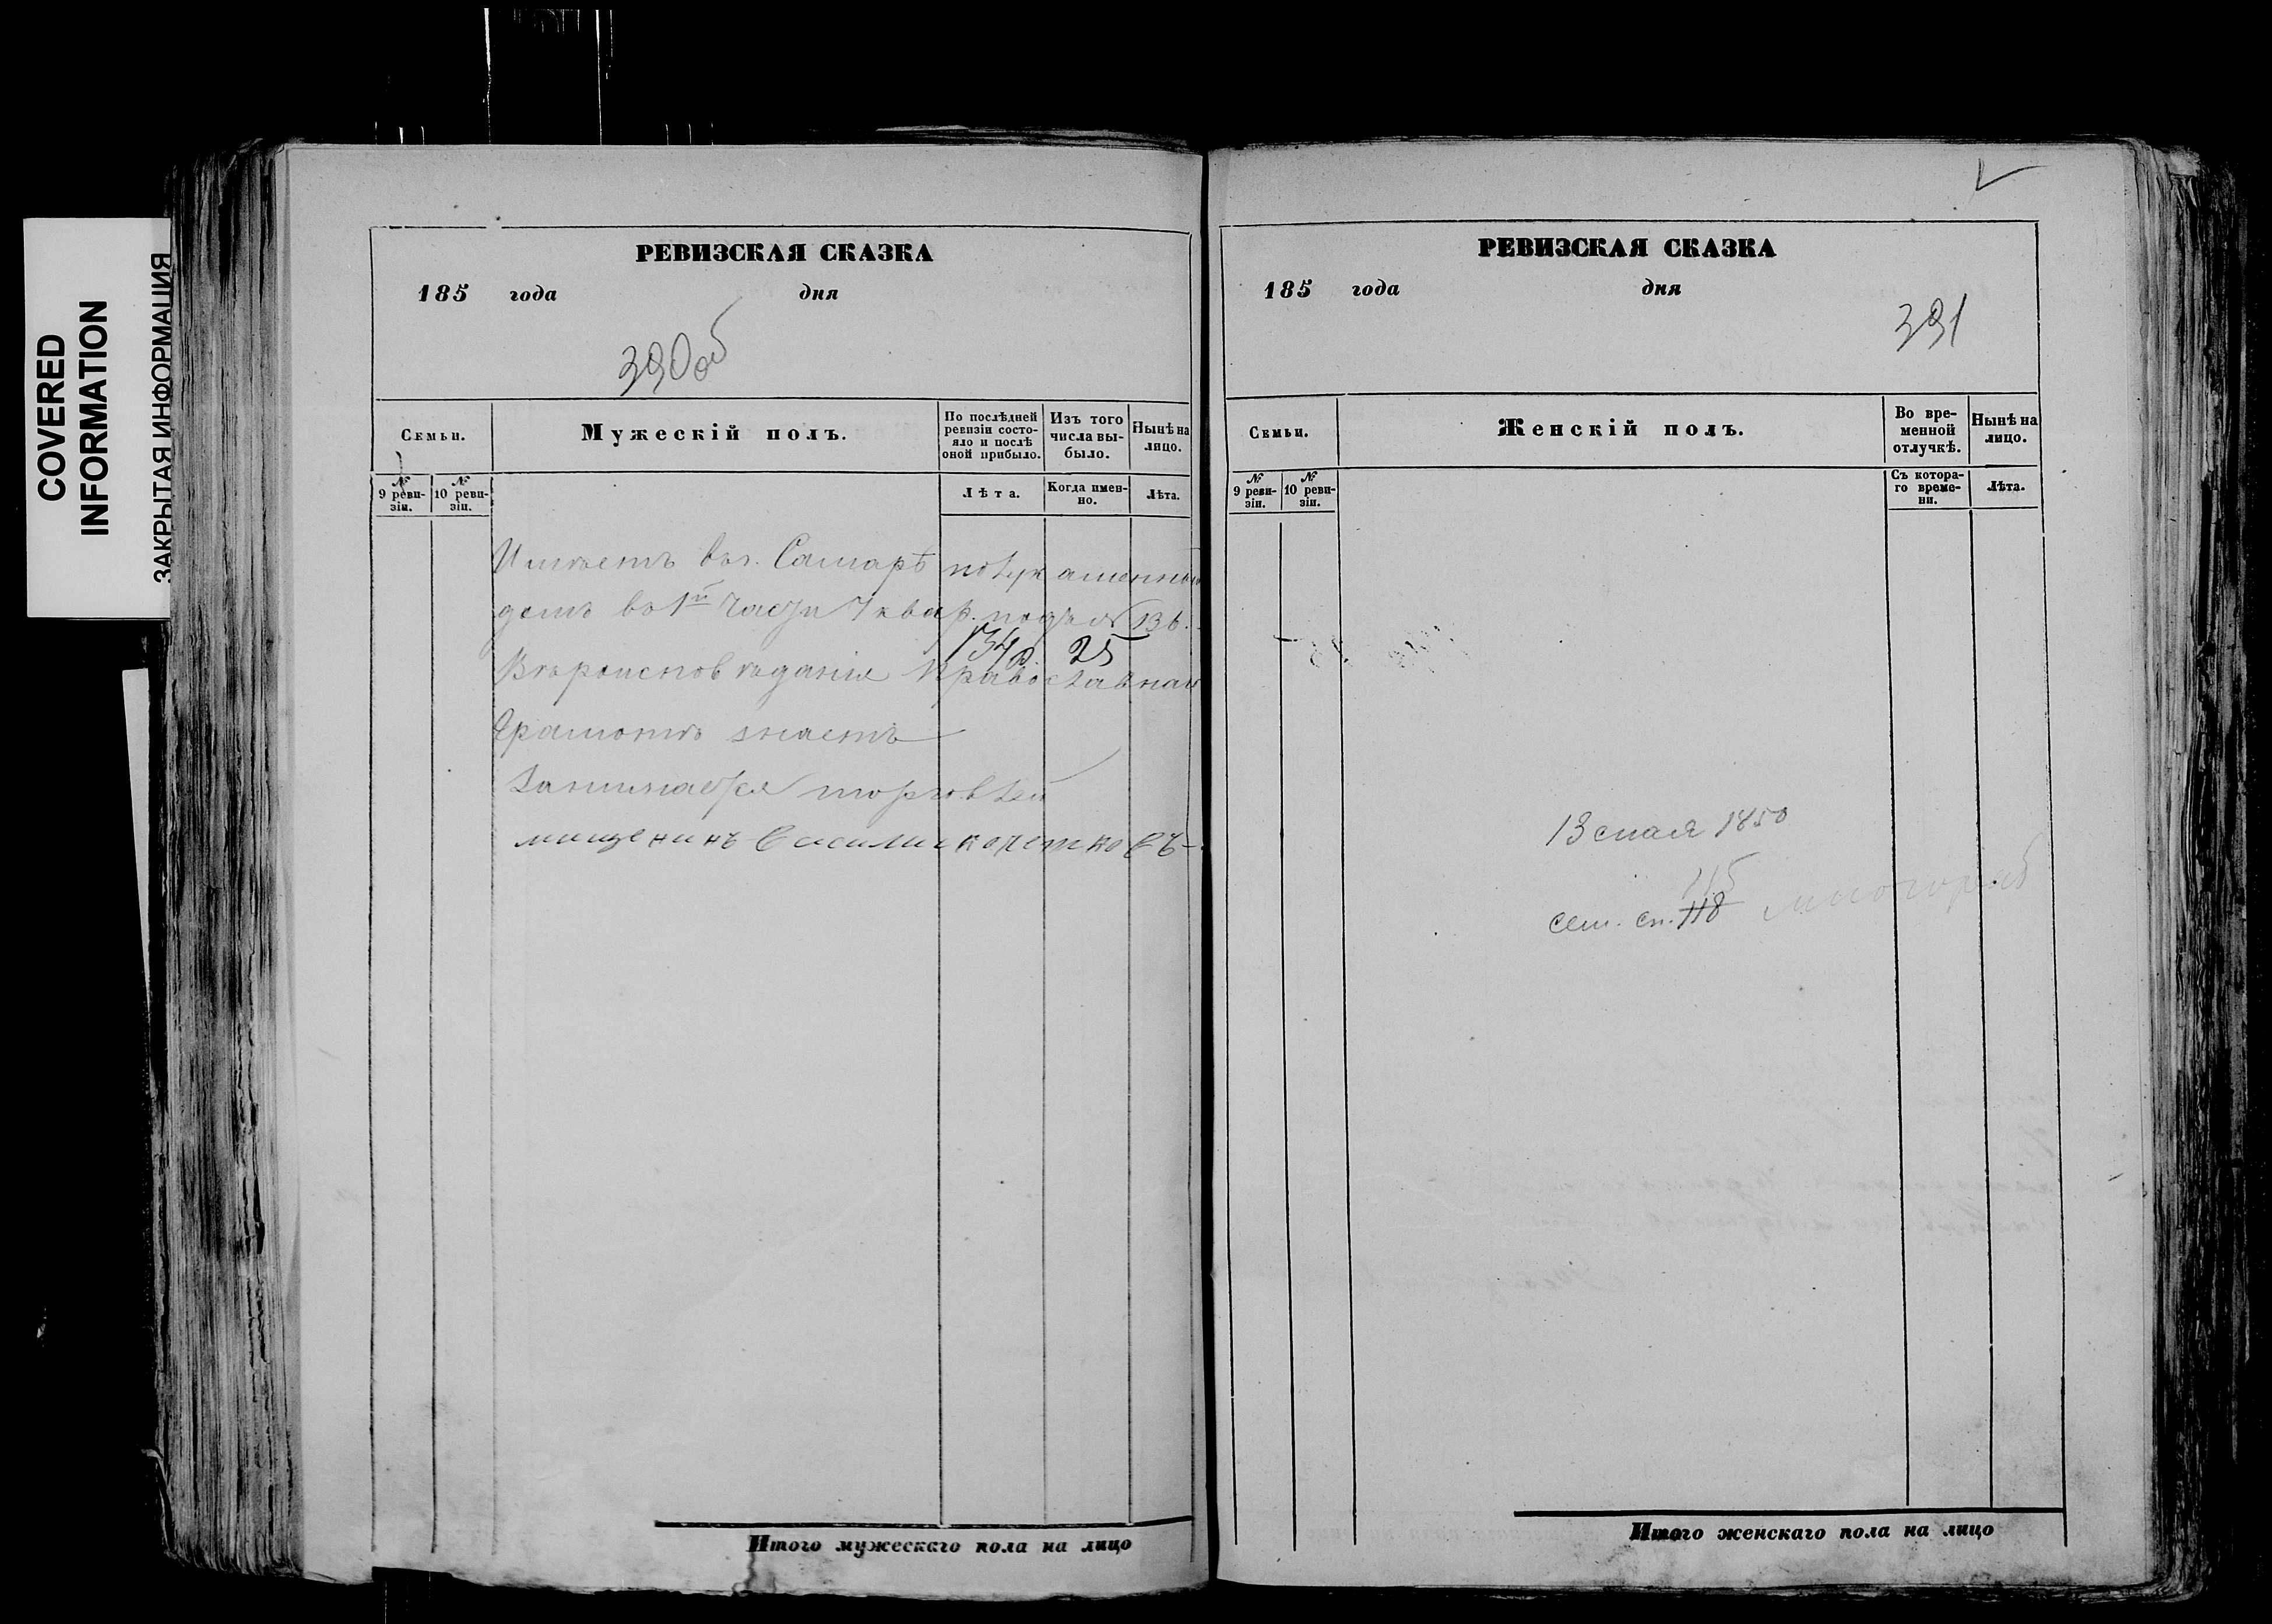 COVERED
INFORMATION
ЗАКРЫТАЯ ИНФОРМАЦИЯ
РЕВИЗСКАЯ СКАЗКА
185 года дня
390об
Семьи.
Мужескій полъ.
По послѣдней ревизіи состояло и послѣ оной прибыло.
Изъ того числа выбыло.
Нынѣ на лицо.
№ 9 ревизіи.
№ 10 ревизіи.
Лѣта.
Когда именно.
Лѣта.
Имѣетъ въ г. Самарѣ полукаменный
домъ въ 1й части 7 квар. подъ № 136.
734 р. 25
Вѣроисповѣданія Православнаго
Грамотѣ знаетъ
Занимается торговлей
мещенинъ Василий кочетковъ
Итого мужескаго пола на лицо
РЕВИЗСКАЯ СКАЗКА
185 года дня
391
Семьи.
Женскій полъ.
Во временной отлучкѣ.
Нынѣ на лицо.
№ 9 ревизіи.
№ 10 ревизіи.
Съ котораго времени.
Лѣта.
13 мая 1858
115
сем. сп. 118
Итого женскаго пола на лицо